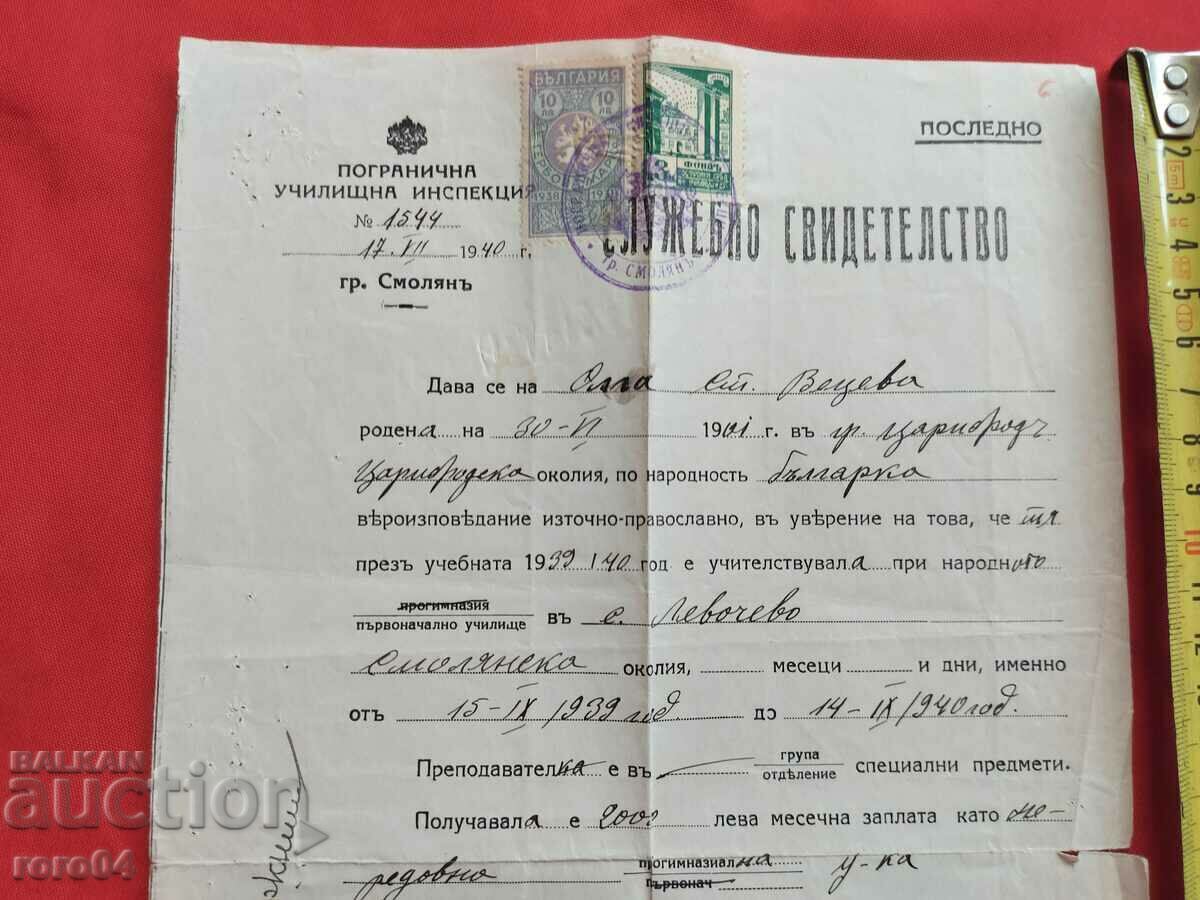 БЪЛГАРИЯ
10 10
ЛВ ЛВ
ГЕРБОВА МАРКА
1938
ФОНДЪ
3
гр. СМОЛЯНЪ
6
ПОСЛЕДНО
ПОГРАНИЧНА
УЧИЛИЩНА ИНСПЕКЦИЯ
№ 1544
17. VII 1940 г.
гр. Смолянъ
СЛУЖЕБНО СВИДЕТЕЛСТВО
Дава се на Олга Ст. Вецева
родена на 30-VI 1901 г. въ гр. Царибродъ
Царибродска околия, по народность българка
вѣроизповѣдание източно-православно, въ увѣрение на това, че тя
презъ учебната 1939/40 год е учителствувала при народното
прогимназия
първоначално училище въ с. Левочево
Смолянска околия, месеци и дни, именно
отъ 15-IX/1939 год. до 14-IX/1940 год.
Преподавателка е въ група
отдѣление специални предмети.
Получавала е 2000 лева месечна заплата като не-
редовна прогимназиална у-ка
първонач
BALKAN
auction
roro04
2 3 4 5 6 7 8 9 10 11 12